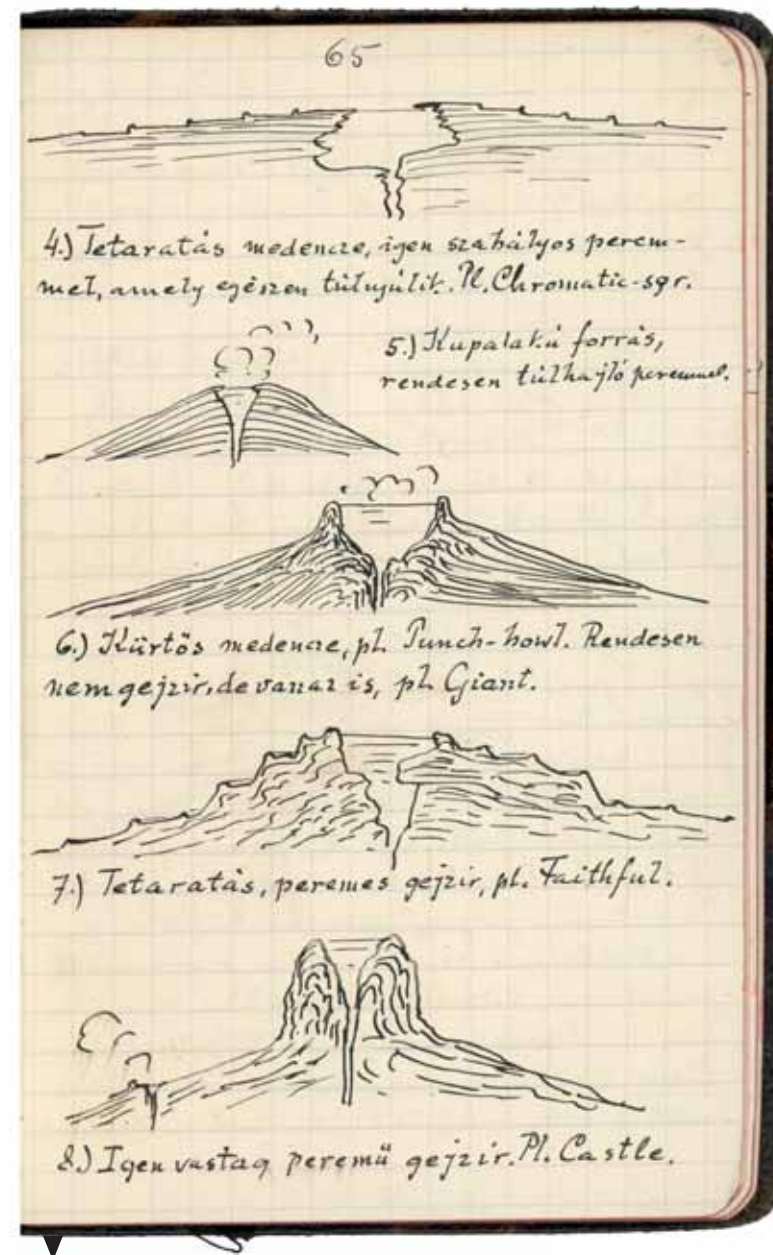 65
4.) Tetaratás medencze, igen szabályos perem-
mel, amely egészen túlnyúlik. Pl. Chromatic-spr.
5.) Kúpalakú forrás,
rendesen túlhajló peremmel.
6.) Kürtős medencze, pl. Punch-bowl. Rendesen
nem gejzir, de van az is, pl. Giant.
7.) Tetaratás, peremes gejzir, pl. Faithful.
8.) Igen vastag peremű gejzir. Pl. Castle.